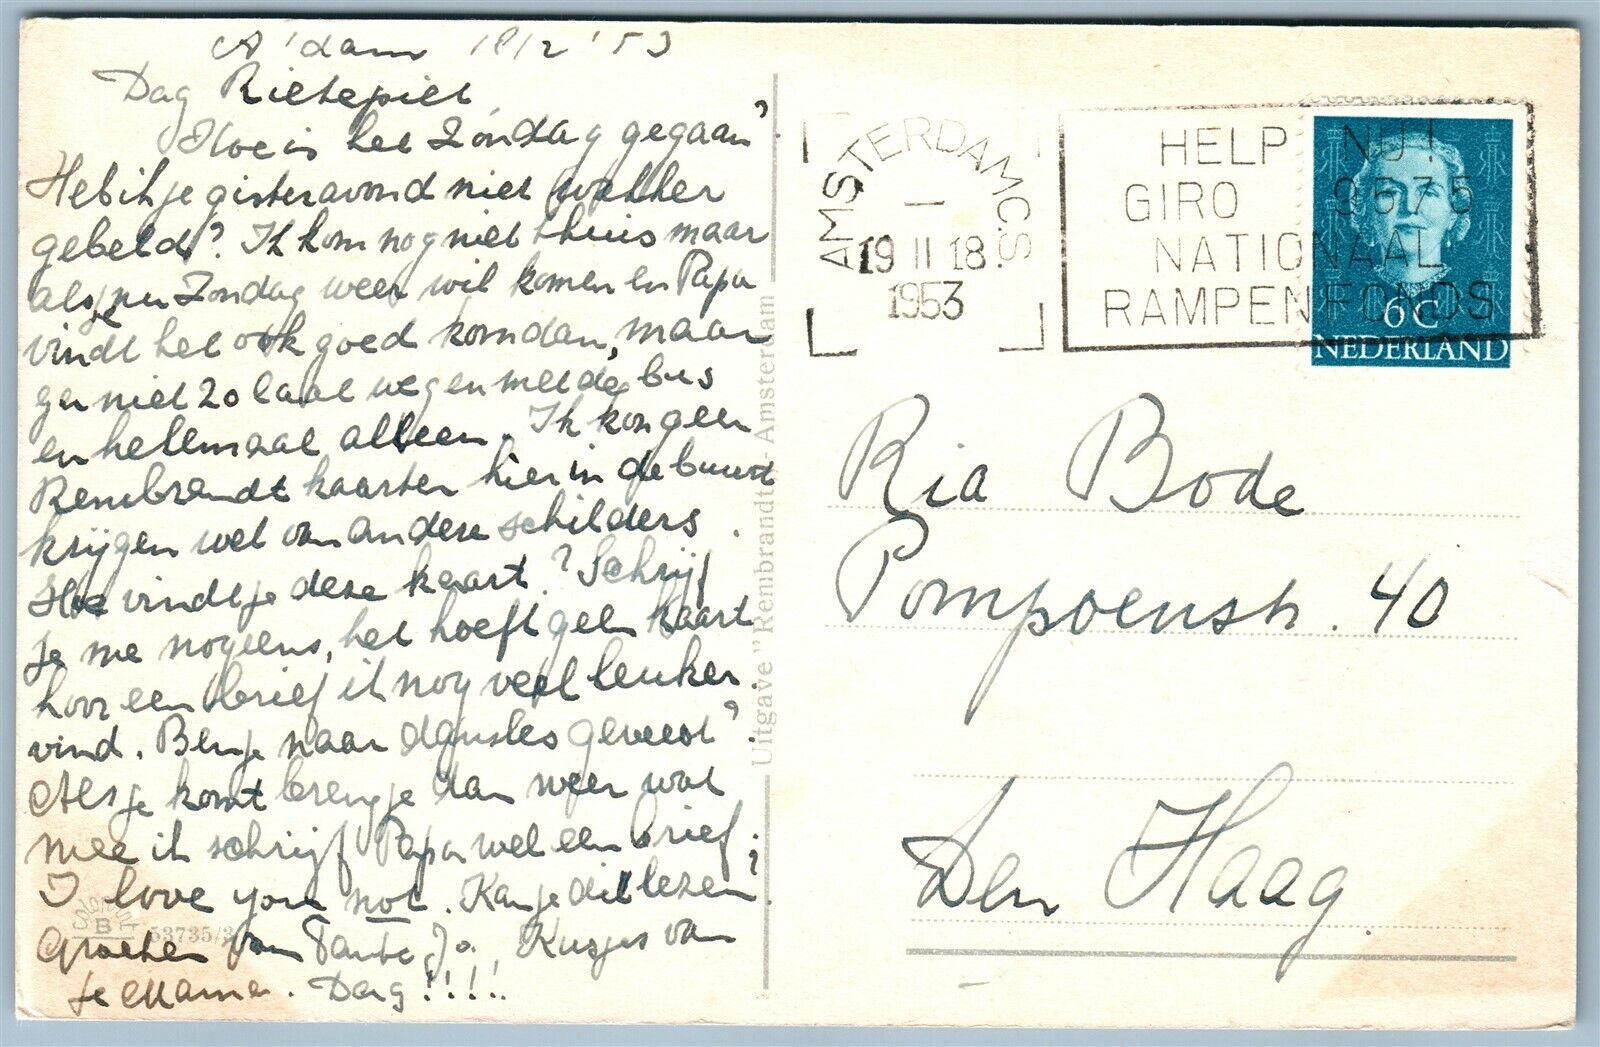 A'dam 18/2 '53
Dag Rietepiet,
Hoe is het Zondag gegaan?
Heb ik je gisteravond niet wakker
gebeld? Ik kom nog niet thuis maar
als je nu Zondag weer wil komen en Papa
vindt het ook goed kom dan, maar
ga niet zo laat weg en met de bus
en helemaal alleen. Ik kon geen
Rembrandt kaarten hier in de buurt
krijgen wel van andere schilders.
Hoe vindt je deze kaart? Schrijf
je me nog eens, het hoeft geen kaart
hoor een brief ik nog veel leuker
vind. Ben je naar dansles geweest?
Als je komt breng je dan weer wat
mee ik schrijf Papa wel een brief.
I love you not. Kan je dit lezen?
Groeten van Tante Jo, Kusjes van
je Mama. Dag!!!!
Uitgave "Rembrandt" - Amsterdam
B
53735/3
AMSTERDAM C.S.
19 II 18
1953
HELP NU!
GIRO 9575
NATIONAAL
RAMPENFONDS
6 C
NEDERLAND
Ria Bode
Pompoenstr. 40
Den Haag